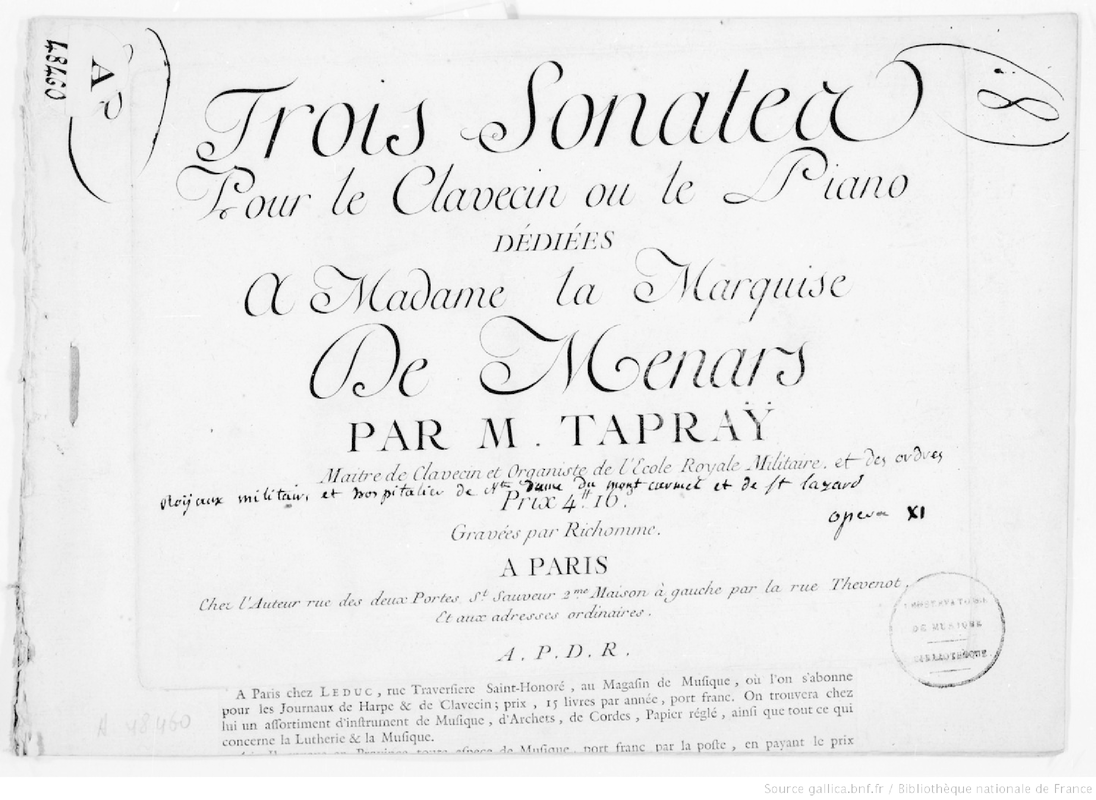 48460
A
8
Trois Sonates
Pour le Clavecin ou le Piano
DÉDIÉES
A Madame la Marquise
De Menars
PAR M. TAPRAŸ
Maitre de Clavecin et Organiste de l'Ecole Royale Militaire. et des ordres
Roÿaux militair, et hospitalier de Nte dame du mont carmel et de st lazard
Prix 4tt 16.
opera XI
Gravées par Richomme.
A PARIS
Chez l'Auteur rue des deux Portes St. Sauveur 2.me Maison à gauche par la rue Thevenot.
Et aux adresses ordinaires.
A. P. D. R.
DE MUSIQUE
BIBLIOTHÈQUE
A Paris chez LEDUC, rue Traversiere Saint-Honoré, au Magasin de Musique, où l'on s'abonne
pour les Journaux de Harpe & de Clavecin; prix, 15 livres par année, port franc. On trouvera chez
lui un assortiment d'instrument de Musique, d'Archets, de Cordes, Papier réglé, ainsi que tout ce qui
concerne la Lutherie & la Musique.
toute espece de Musique, port franc par la poste, en payant le prix
A 48460
Source gallica.bnf.fr / Bibliothèque nationale de France